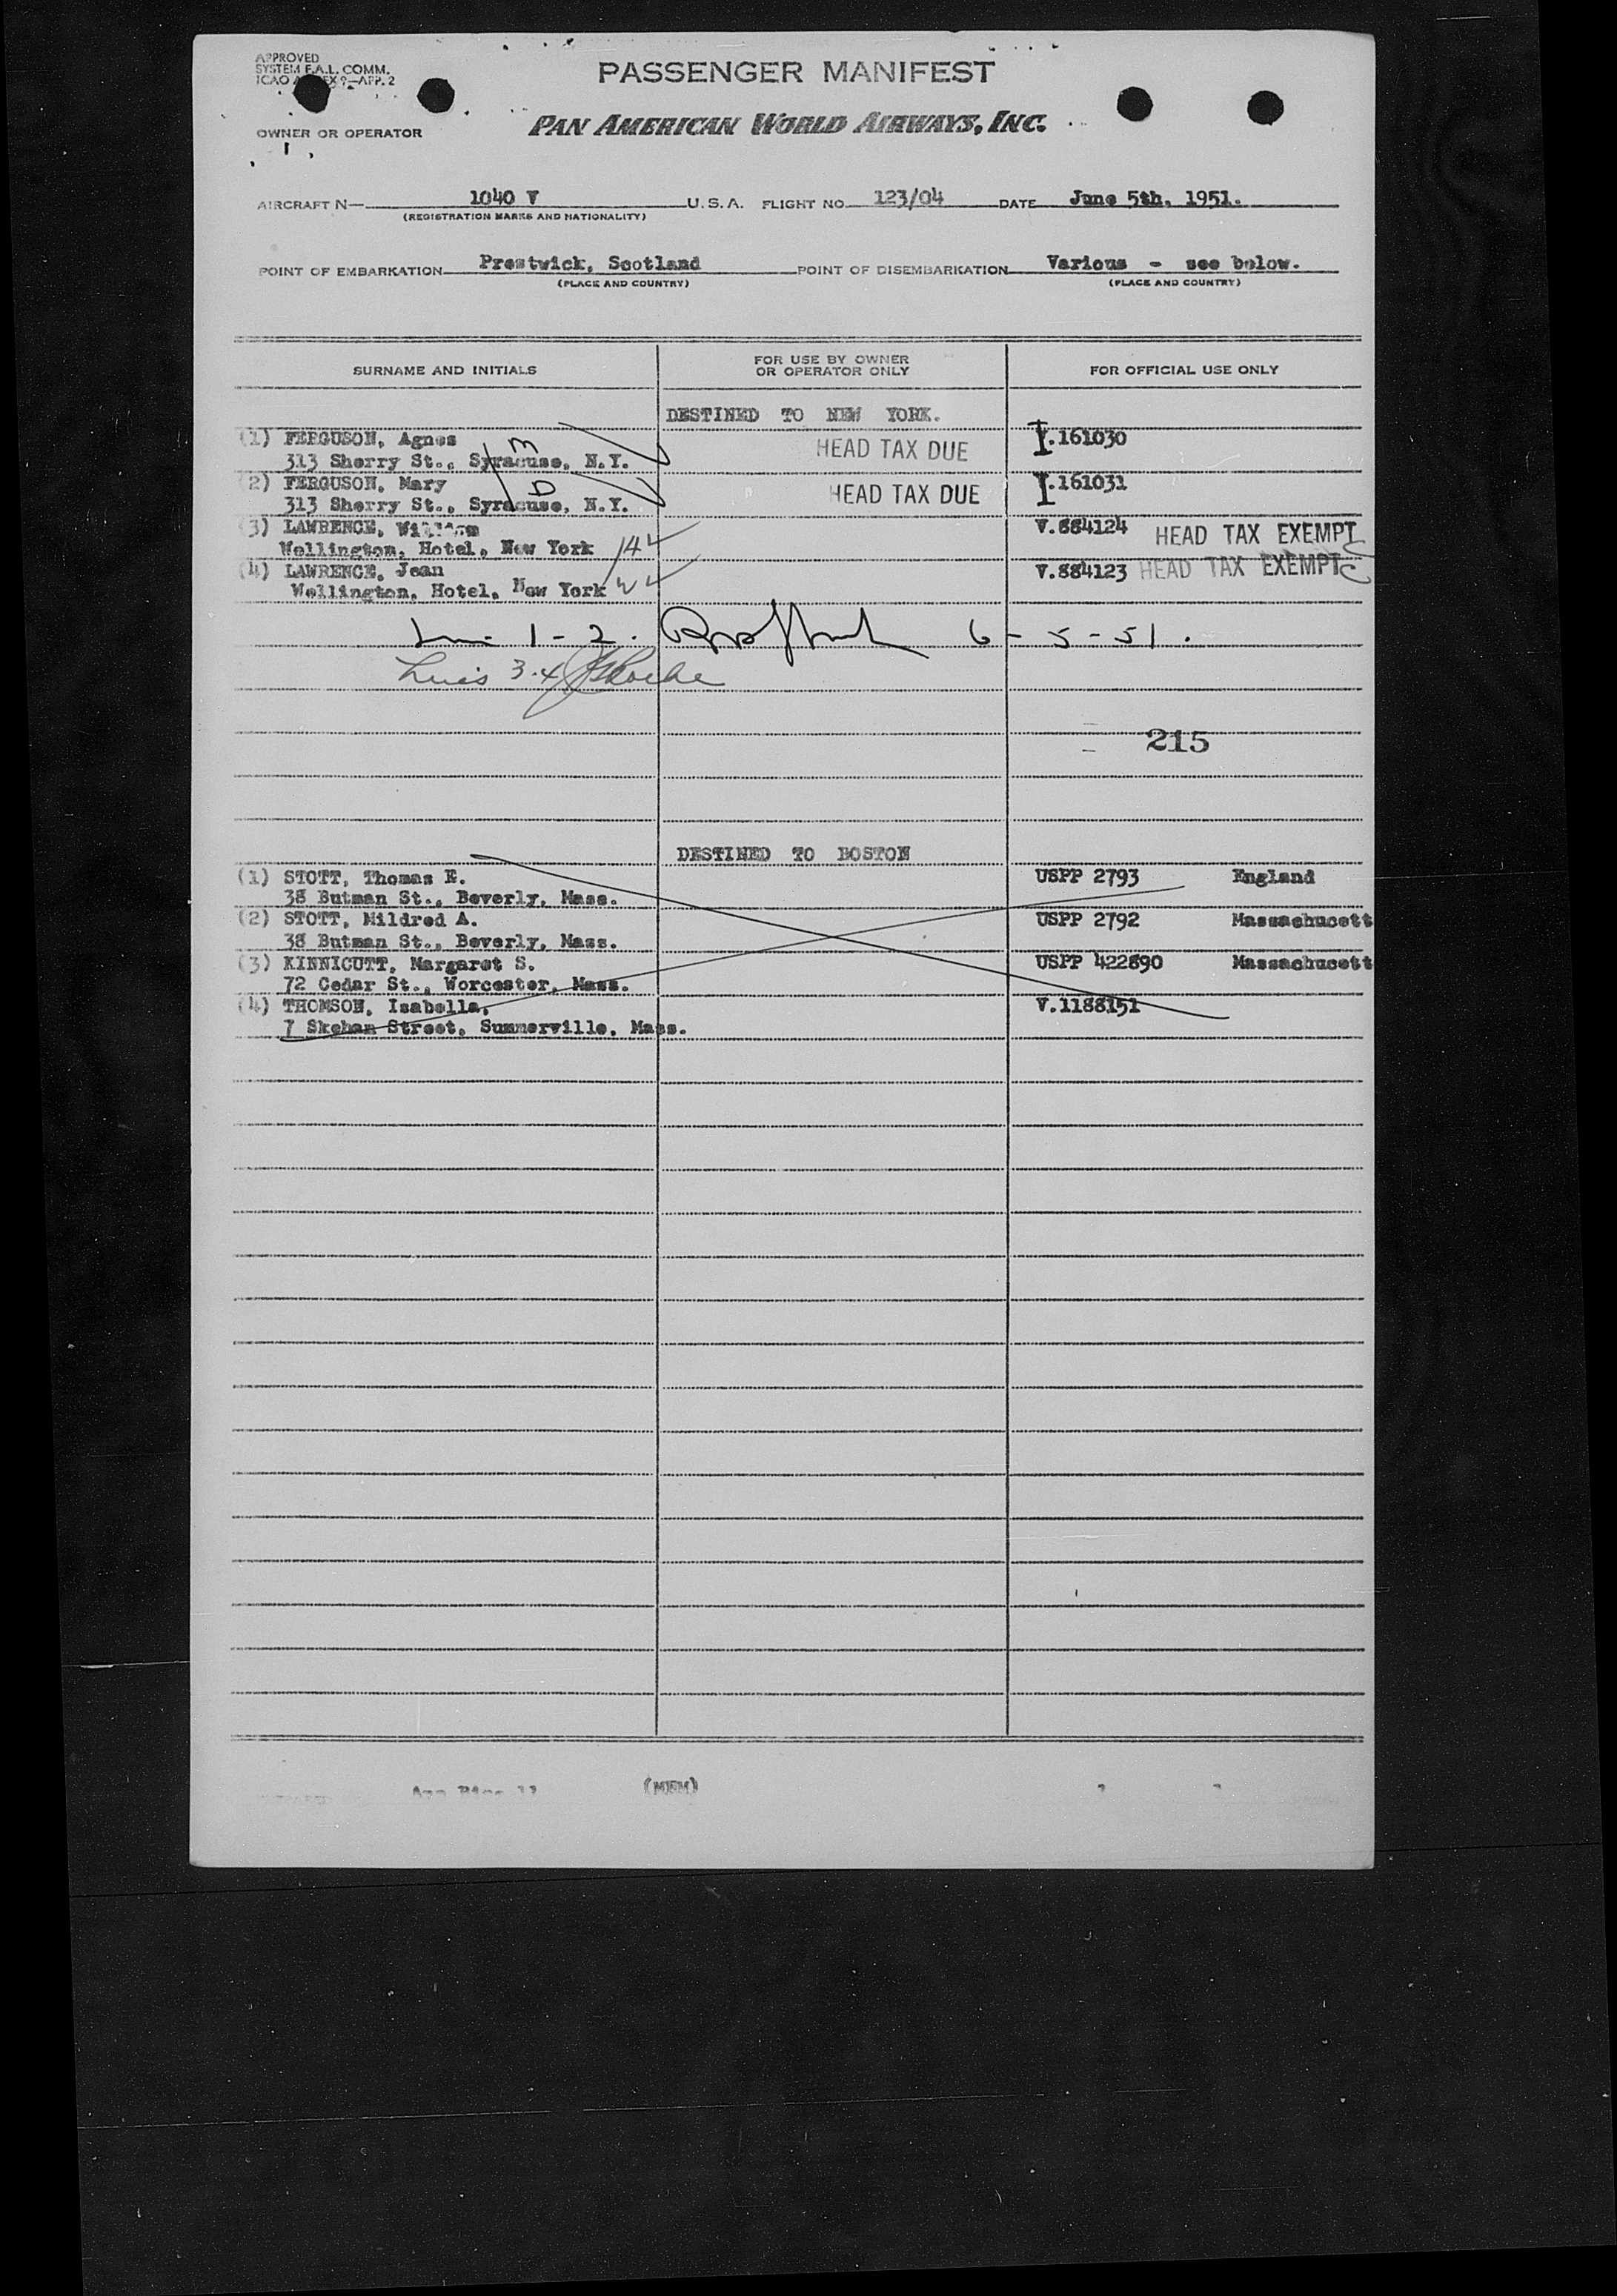 APPROVED
SYSTEM F.A.L. COMM.
ICAO
PASSENGER MANIFEST
OWNER OR OPERATOR
PAN AMERICAN WORLD AIRWAYS, INC.
AIRCRAFT N— 1040 V U.S.A. FLIGHT NO. 123/04 DATE June 5th, 1951.
(REGISTRATION MARKS AND NATIONALITY)
POINT OF EMBARKATION Prestwick, Scotland POINT OF DISEMBARKATION Various - see below.
(PLACE AND COUNTRY) (PLACE AND COUNTRY)
SURNAME AND INITIALS FOR USE BY OWNER OR OPERATOR ONLY FOR OFFICIAL USE ONLY
DESTINED TO NEW YORK.
(1) FERGUSON, Agnes HEAD TAX DUE I.161030
313 Sherry St., Syracuse, N.Y. M
(2) FERGUSON, Mary HEAD TAX DUE I.161031
313 Sherry St., Syracuse, N.Y. D
(3) LAWRENCE, William V.884124 HEAD TAX EXEMPT
Wellington, Hotel, New York
(4) LAWRENCE, Jean V.884123 HEAD TAX EXEMPT
Wellington, Hotel, New York
1 - 2. 6 - 5 - 51.
Lines 3.4
215
DESTINED TO BOSTON
(1) STOTT, Thomas E. USPP 2793 England
38 Butman St., Beverly, Mass.
(2) STOTT, Mildred A. USPP 2792 Massachucett
38 Butman St., Beverly, Mass.
(3) KINNICUTT, Margaret S. USPP 422890 Massachucett
72 Cedar St., Worcester, Mass.
(4) THOMSON, Isabella, V.1188151
7 Skehan Street, Summerville, Mass.
(MEM)